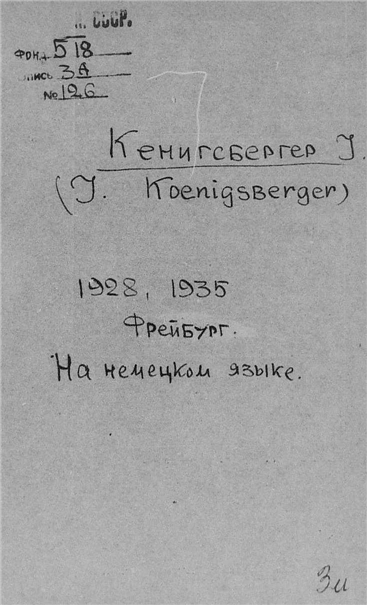 СССР.
ФОНД 518
ОПИСЬ 3А
№ 126
Кенигсбергер J.
(J. Koenigsberger)
1928, 1935
Фрейбург.
На немецком языке.
3и